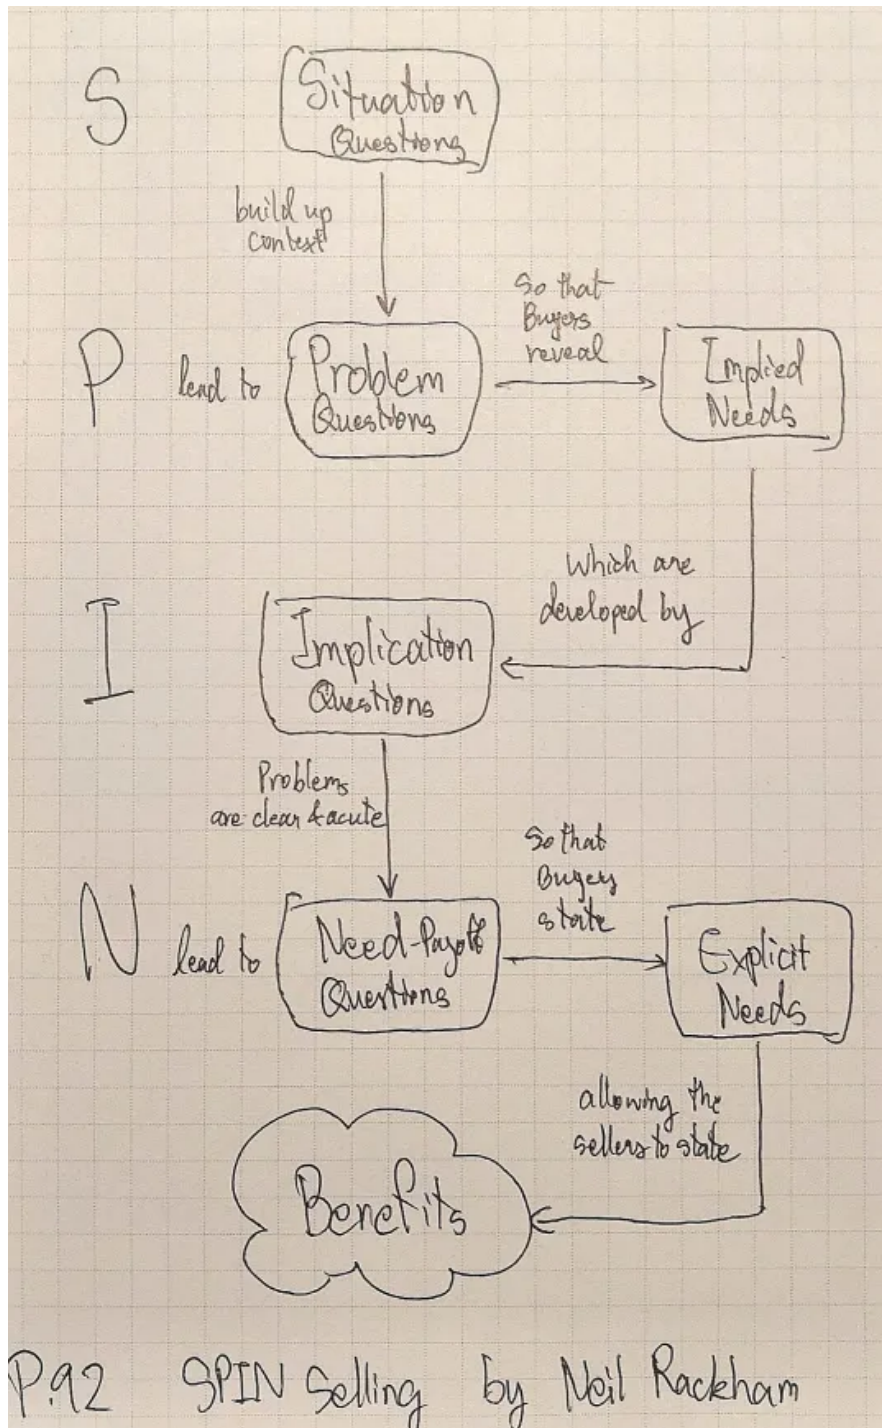 S
Situation
Questions
build up
context
P
lead to
Problem
Questions
So that
Buyers
reveal
Implied
Needs
Which are
developed by
I
Implication
Questions
Problems
are clear & acute
N
lead to
Need-Payoff
Questions
So that
Buyers
state
Explicit
Needs
allowing the
sellers to state
Benefits
P.92 SPIN Selling by Neil Rackham